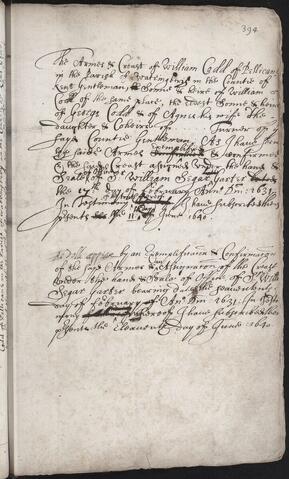 394
The Armes & Creast of William Codd of Pellicans
in the Parish of Wateringbury in the Countie of
Kent Gentleman, Sonne & heire of William
Codd of the same place, the eldest Sonne & heire
of George Codd & of Agnes his wife the
daughter & Coheire of Turner of
Countie Gentleman. As I have seen
the said Armes Exemplified & confirmed
& the said Creast assigned under the hand &
Seale of Office of Sr William Segar
the 17th day of February Anno Dm: 1631
In Testimony I have subscribed these
presents the 11 of June 1640.
by an Exemplification & Confirmation
of the said Armes & Assignation of the Creast
under the hand & Seale of Office of Sr Willm
Segar Garter bearing date the seaventeenth
day of February Ano Dm 1631. In Testi
mony whereof I have subscribed these
presents the Eleaventh day of June 1640